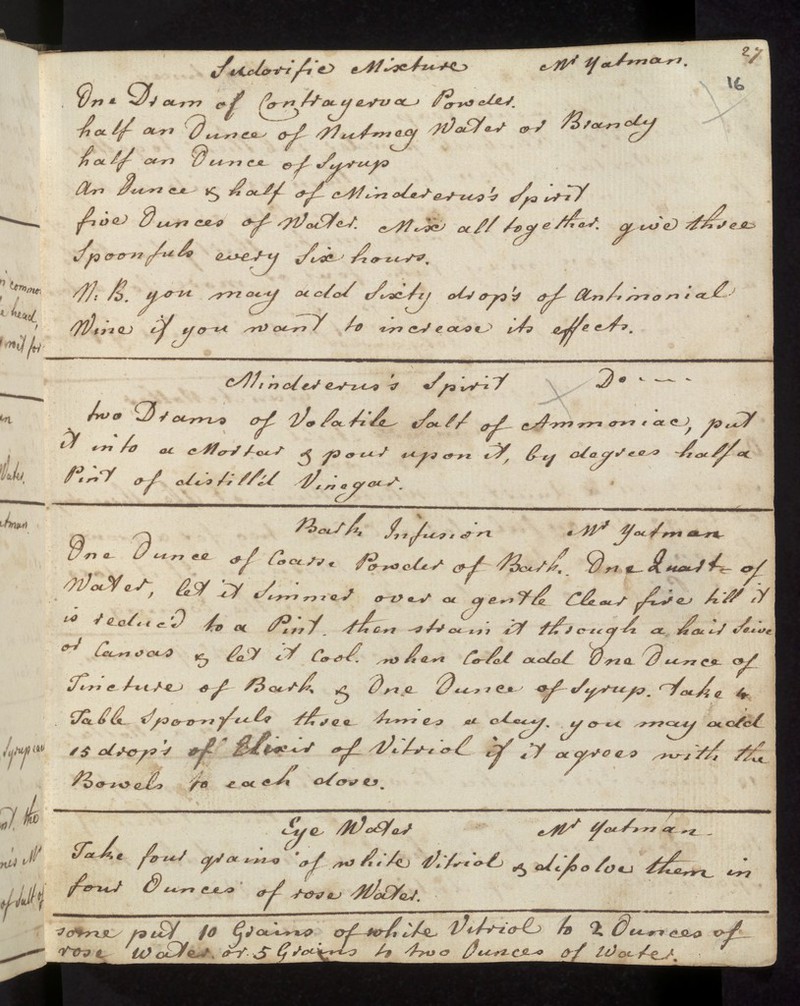 27
16
Sudorific Mixture Mr Yatman.
One Dram of Contrayerva Powder.
half an Ounce of Nutmeg Water or Brandy
half an Ounce of Syrup
An Ounce & half of Mindererus's Spirit
five Ounces of Water. Mix all together. give three
Spoonfuls every Six hours.
N: B. you may add Sixty drop's of Antimonial
Wine if you want to increase its effects.
Mindererus's Spirit Do
two Drams of Volatile Salt of Ammoniac, put
it into a Mortar & pour upon it, by degrees half a
Pint of distill'd Vinegar.
Bark Infusion Mr Yatman
One Ounce of Coarse Powder of Bark. One Quart of
Water, let it Simmer over a gentle Clear fire till it
is reduc'd to a Pint. then strain it through a hair Seive
or Canvas & let it Cool. when Cold add One Ounce of
Tincture of Bark & One Ounce of Syrup. Take 4
Table Spoonfuls three times a day. you may add
15 drop's of Elixir of Vitriol if it agrees with the
Bowels to each dose.
Eye Water Mr Yatman.
Take four grains of white Vitriol & dissolve them in
four Ounces of rose Water.
some put 10 Grains of white Vitriol to 2 Ounces of
rose Water. or 5 Grains to two Ounces of Water.
n common
head,
Water.
atman
Syrup
the
Mr
of Salt of